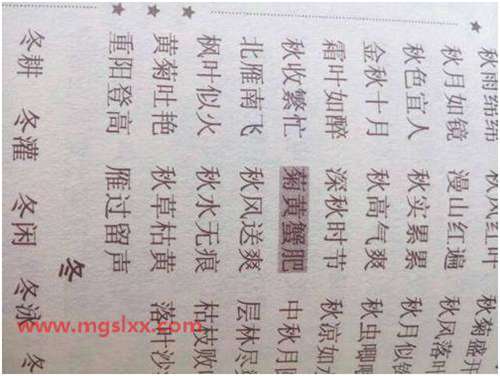 秋雨绵绵 红叶 秋菊盛开
秋月如镜 漫山红遍 秋风落叶
秋色宜人 秋实累累 秋月似
金秋十月 秋高气爽 秋虫唧唧
霜叶如醉 深秋时节 秋凉如水
秋收繁忙 菊黄蟹肥 中秋月
北雁南飞 秋风送爽 层林尽
枫叶似火 秋水无痕 枯枝败
黄菊吐艳 秋草枯黄 落叶沙
重阳登高 雁过留声
冬
冬耕 冬灌 冬闲 冬泳 冬
www.mgslxx.com